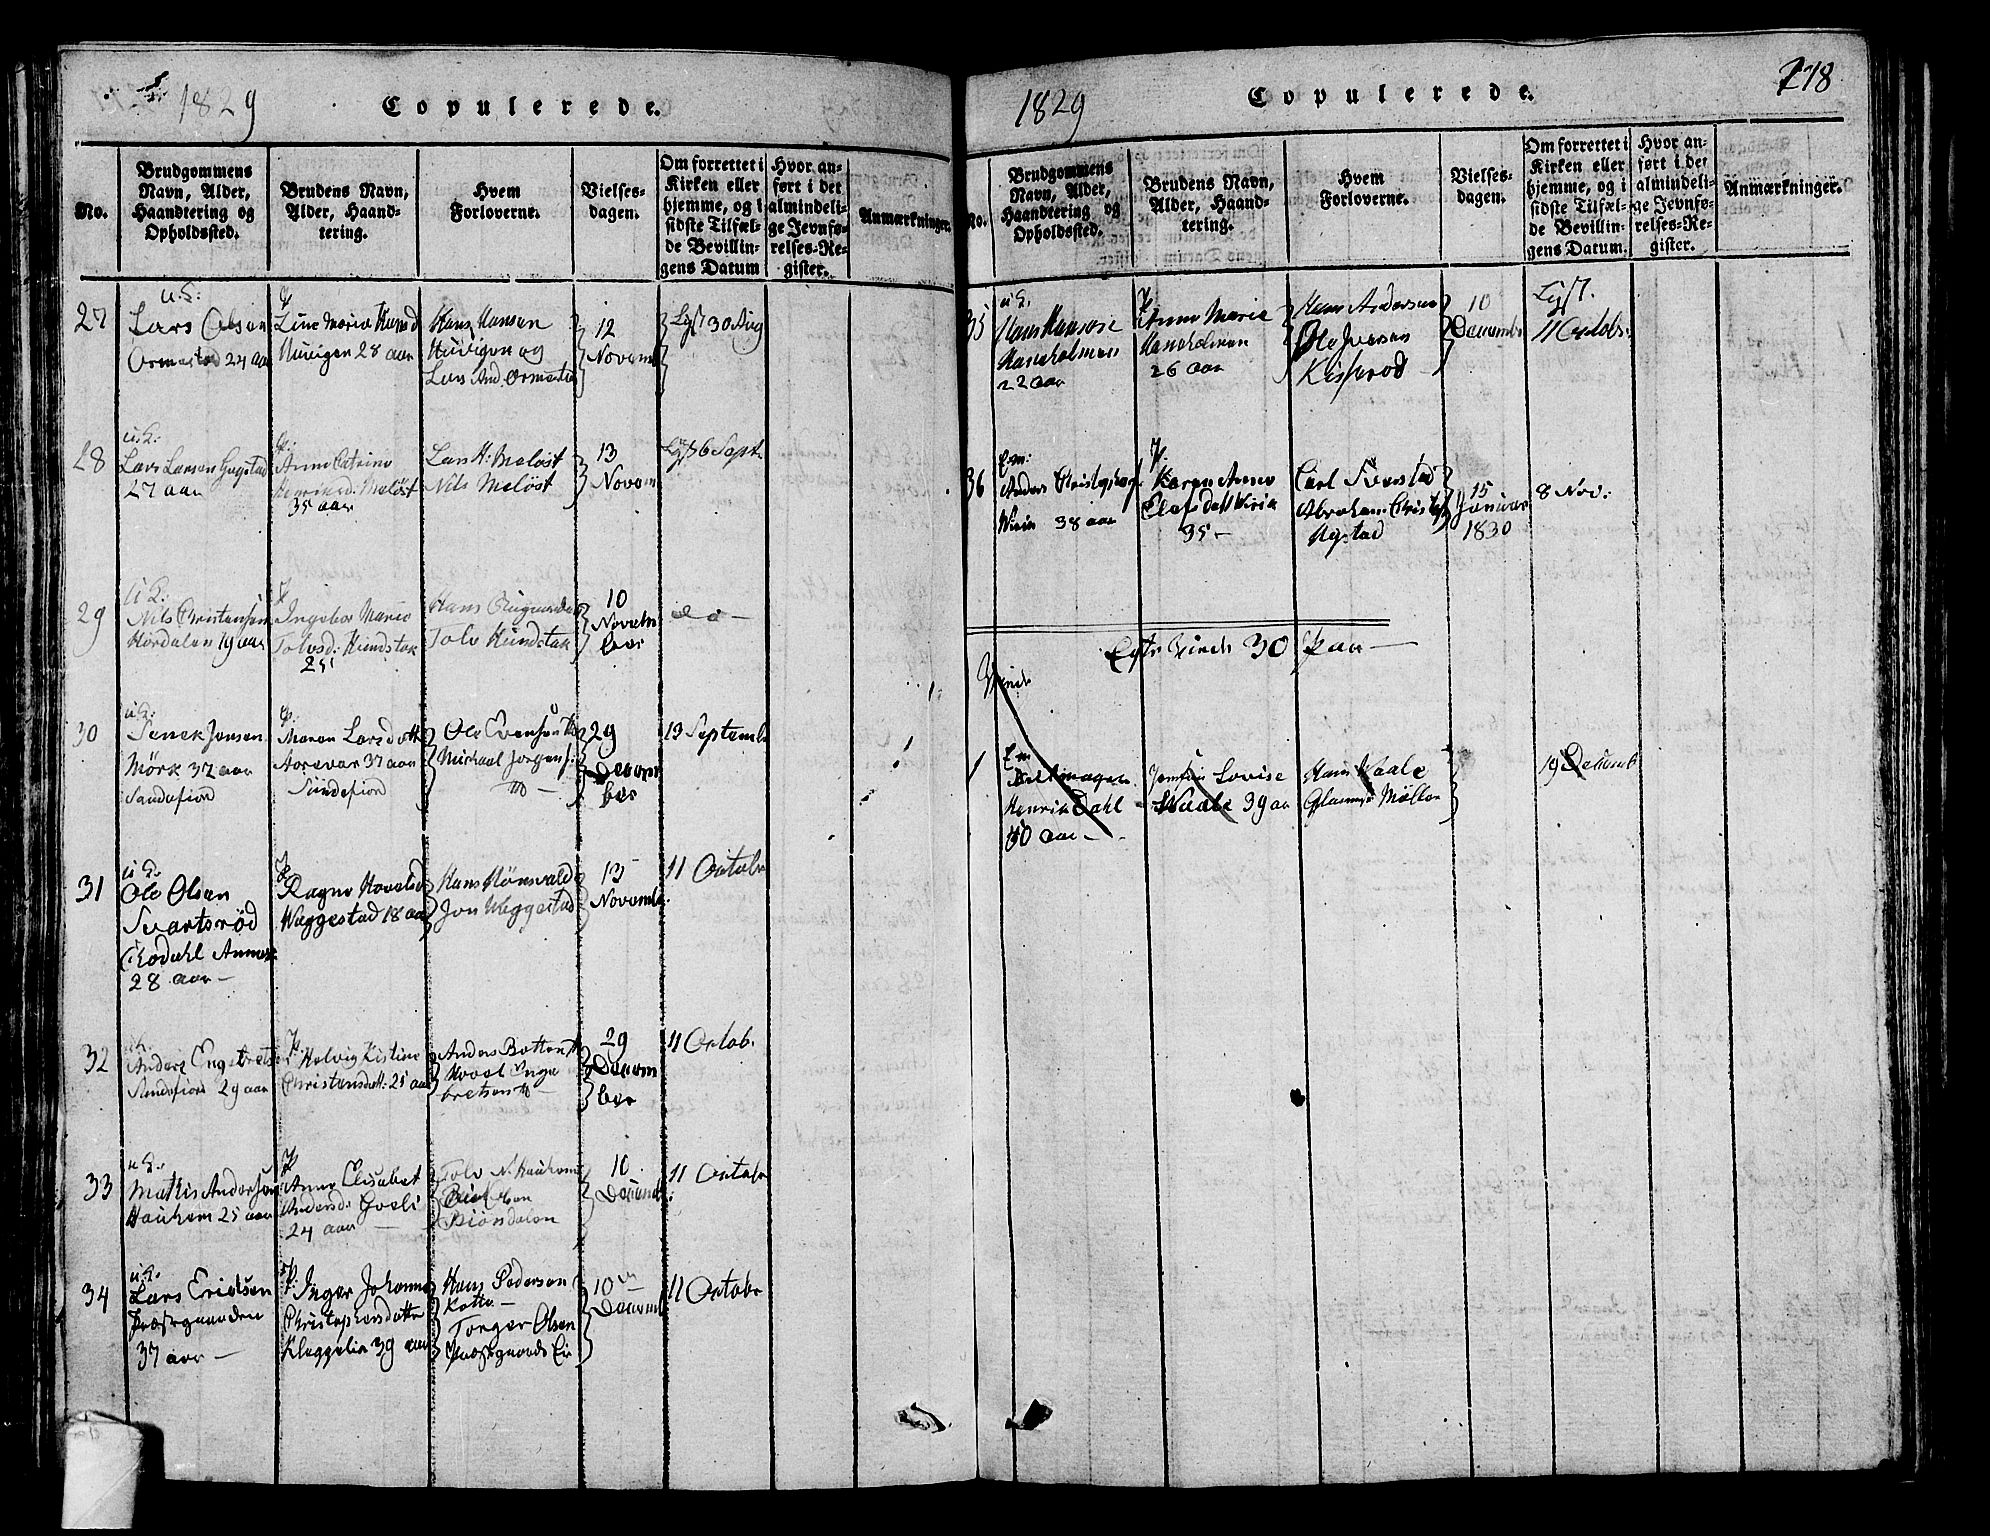 1829
Copulerede.
No.
Brudgommens
Navn, Alder,
Haandtering og
Opholdssted.
Brudens Navn,
Alder, Haand-
tering.
Hvem
Forloverne.
Vielses-
dagen.
Om forrettet i
Kirken eller
hjemme, og i
sidste Tilfæl-
de Bevillin-
gens Datum
Hvor an-
ført i det
almindeli-
ge Jevnfø-
relses-Re-
gister.
Anmærkninger.
27
u.K:
Lars Olsen
Ormestad 24 aar
Line Marie Hansd
Huvigen 28 aar
Hans Hansen
Huvigen og
Lars And. Ormestad
12
Novemb
Lyst 30 Aug
28
u.K:
Lars Larsen Hugstad
27 aar
Anne Catrine
Henriksd: Meløst
35 aar
Lars H: Meløst
Nils Meløst
13
Novem
Lyst 6 Sept.
29
u.K:
Nils Christensen
Hordalen 19 aar
Ingebor Marie
Tolvsd: Hundstok
25
Hans
Tolv Hundstok
10
Novem
ber
do
30
u.K:
Jensen
Mørk 37 aar
Sandefiord
Maren Larsdatt
37 aar
Sandefiord
Ole Evensen
Michael Jørgens:
29
Decem
ber
13 Septemb
31
u.K.
Ole Olsen
Svartsrød
Kodahl Annex
28 aar
Ragne Hovelsd
Weggestad 18 aar
Hans Hønsvald
Jon Weggestad
13
Novemb.
11 Octobr
32
u.K.
Anders Engebrets
Sandefiord 29 aar
Helvig Kistine
Christensdatt: 25 aar
Anders Botten
Hovel Inge
bretsen
29
Decem
ber
11 Octob.
33
u.K.:
Mathis Andersen
Haukem 25 aar
Anne Elisabet
Andersd: Goeli
24 aar
Tolv N. Haukem
Olsen
Biøndalen
10
Decemb
11 Octobr
34
u.K.
Lars Erichsen
Præstgaarden
37 aar
Inger Johanne
Christophersdatter
Kleggelia 39 aar
Hans Pedersen
Torger Olsen
Præstgaards Eie
10
Decemb
11 Octobr
1829
Copulerede.
218
No.
Brudgommens
Navn, Alder,
Haandtering og
Opholdssted.
Brudens Navn,
Alder, Haand-
tering.
Hvem
Forloverne.
Vielses-
dagen.
Om forrettet i
Kirken eller
hjemme, og i
sidste Tilfæl-
de Bevillin-
gens Datum.
Hvor an-
ført i det
almindeli-
ge Jevnfø-
relses-Re-
gister.
Anmærkninger.
35
u.K.
Hans Hansen
Haneholmen
22 aar
Anne Marie
Haneholmen
26 aar
Hans Andersen
Ole Iversen
Kisserød
10
Decemb
Lyst.
11 Octob:
36
Em:
Anders Christophers
Virik 38 aar
Karen Anne
Elefsdatt Virik
35 —
Carl Sverstad
Abraham Christ
Nystad
15
Januar
1830
8 Nov:
30 Par
1
Em
Henrik Dahl
50 aar
Lovise
Waale 39 aar
Hans Waale
Møller
19 Decemb